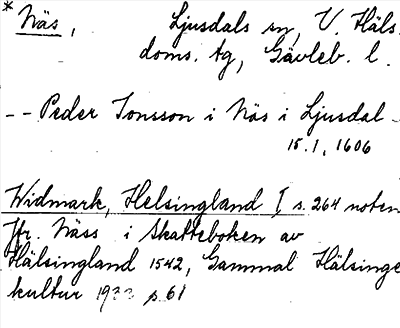 * Näs, Ljusdals sn, V. Häls.
doms. tg, Gävleb. l.
-- Peder Jonsson i Näs i Ljusdal -
15.1, 1606
Widmark, Helsingland I, s. 264 noten
Jfr. Näss i Skatteboken av
Hälsingland 1542, Gammal Hälsinge
kultur 1933 s. 61